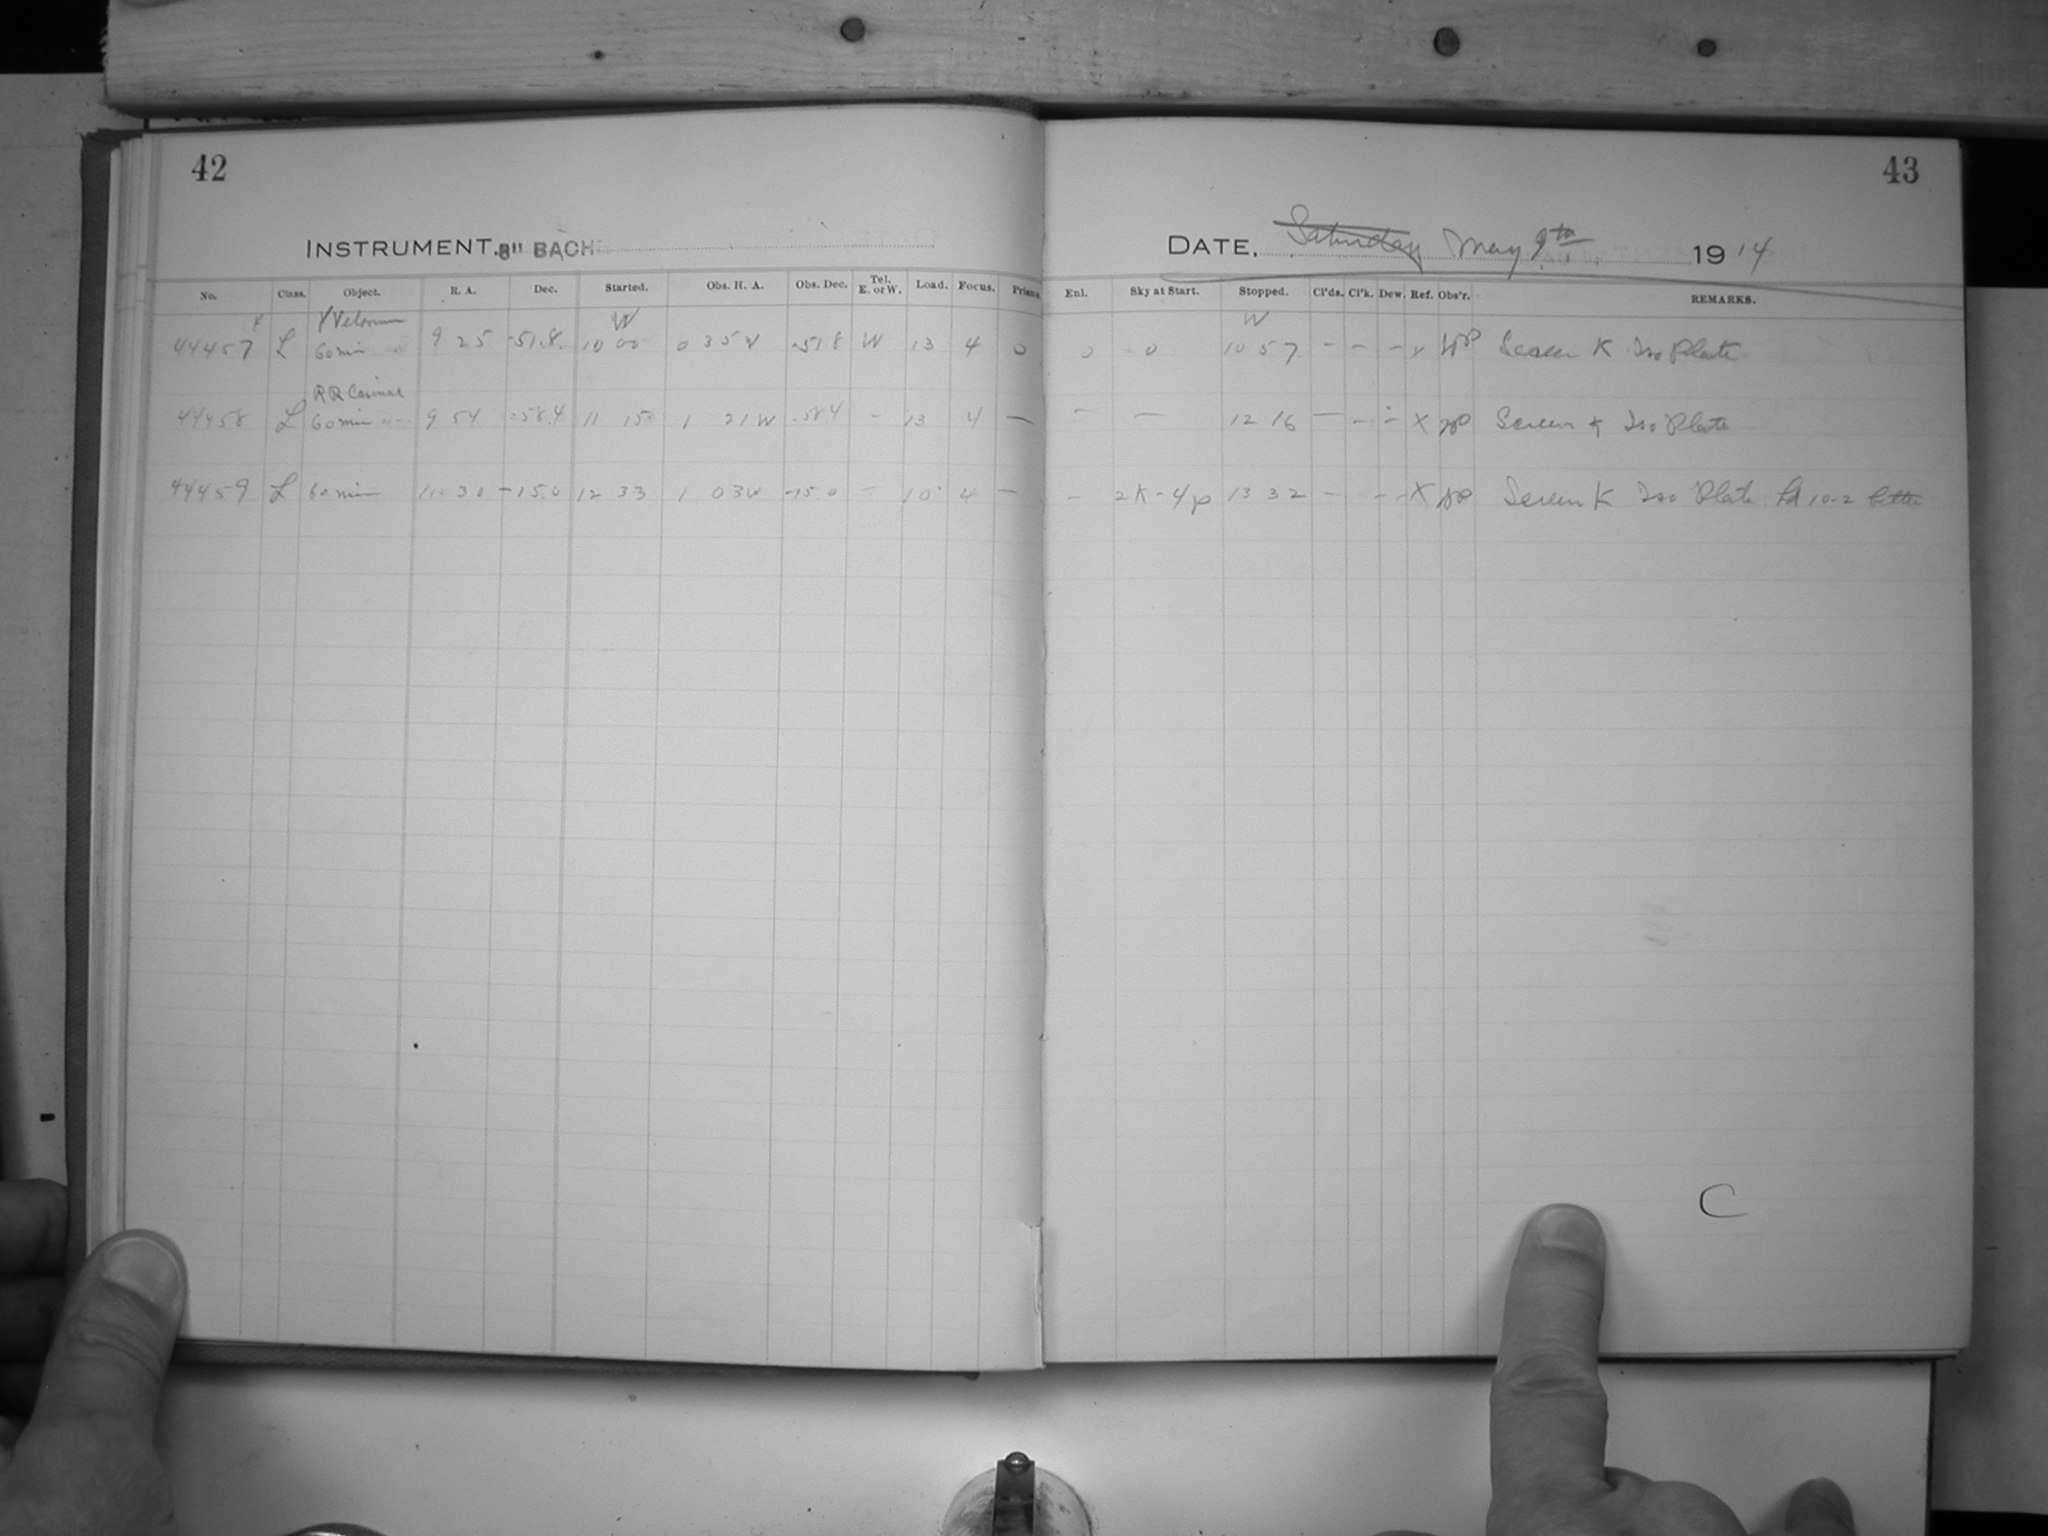 42
INSTRUMENT. 8" BACHE
No. Class. Object. R. A. Dec. Started. Obs. H. A. Obs. Dec. Tel. E. or W. Load. Focus. Prism.
Y Velorum W
44457 L 60 min 9 25 -51.8 10 00 0 35 W -51.8 W 13 4 0
RR Carinae
44458 L 60 min 9 54 -58.4 11 15 1 21 W -58.4 - 13 4 -
44459 L 60 min 11 30 -15.0 12 33 1 03 W -15.0 - 10 4 -
43
DATE, Saturday May 9th 1914
Enl. Sky at Start. Stopped. Cl'ds. Cl'k. Dew. Ref. Obs'r. REMARKS.
W
0 0 10 57 - - - x Screen K Iso Plate
- - 12 16 - - - X Screen K Iso Plate
- 2K-4p 13 32 - - - X Screen K Iso Plate 10-2 better
C